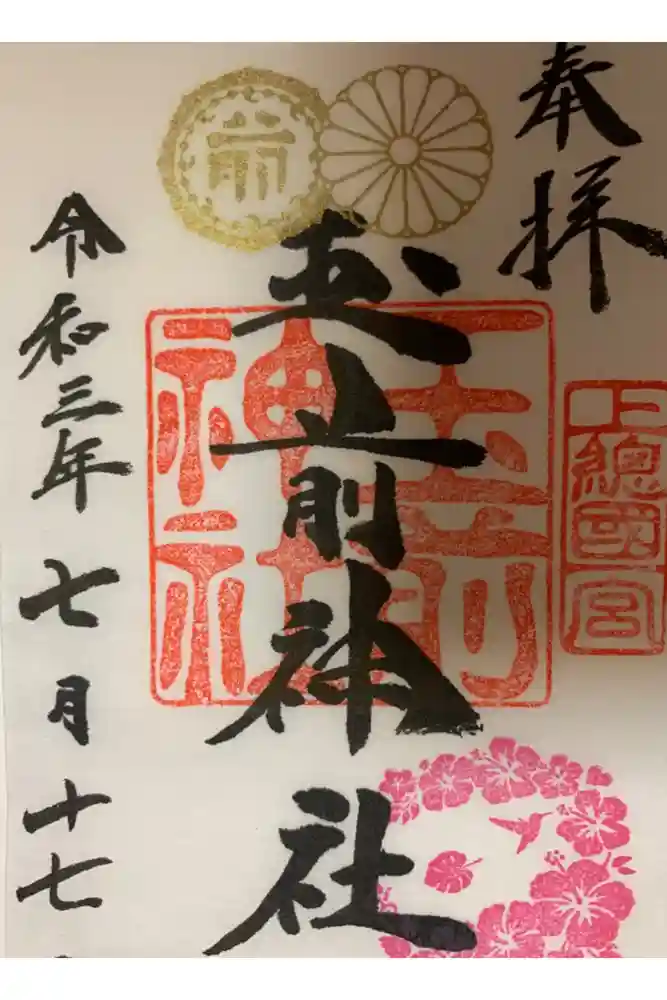 奉拝
上總國一宮
玉前神社
玉前神社
前
令和三年七月十七